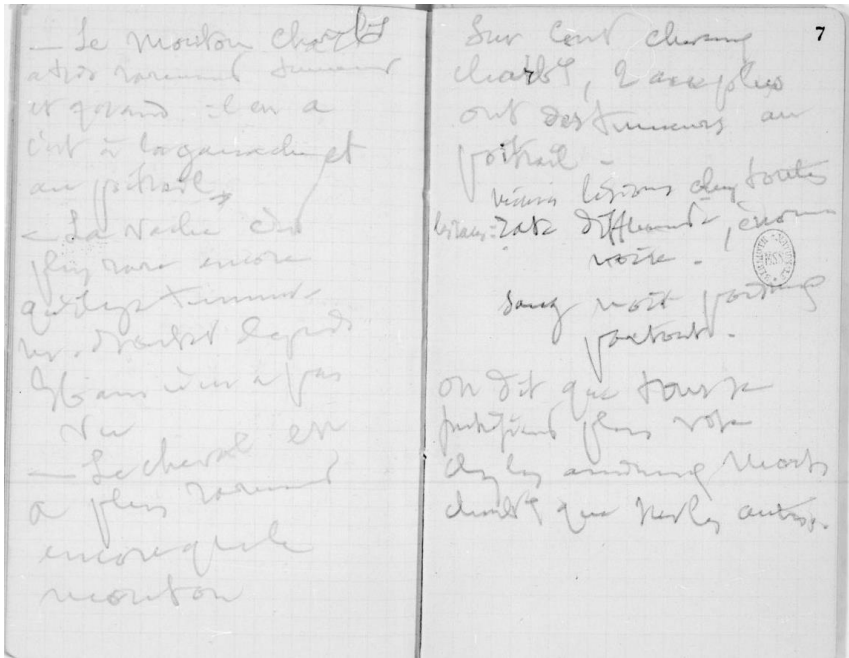 — Le mouton charb
a très rarement tumeurs
et quand il en a
c'est à la ganache et
au poitrail
— La vache en a
plus rare encore
que les tumeurs
depuis
ans n'en a pas
vu
— Le cheval en
a plus rarement
encore que le
mouton
7
Sur cent chevaux
charb, 2 au plus
ont des tumeurs au
poitrail -
mêmes lésions chez toutes
les races = rate diffluente, énorme
noire -
sang noir poisseux
partout -
on dit que tous se
putréfient plus vite
chez les animaux morts
charb que les autres.